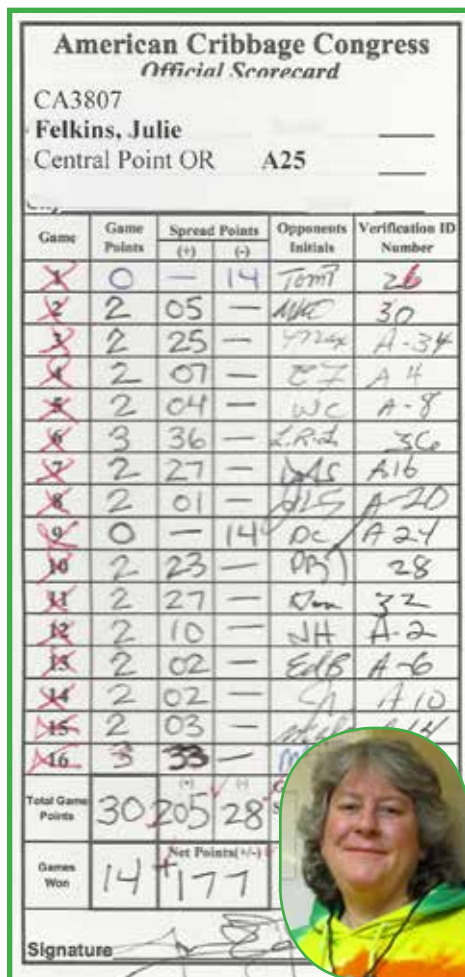 American Cribbage Congress
Official Scorecard
CA3807
Felkins, Julie
Central Point OR A25
Game Game Points Spread Points (+) (-) Opponents Initials Verification ID Number
1 0 — 14 Tom 26
2 2 05 — 30
3 2 25 — Max A-34
4 2 07 — A 4
5 2 04 — WC A-8
6 3 36 — 36
7 2 27 — A16
8 2 01 — A-20
9 0 — 14 DC A 24
10 2 23 — 28
11 2 27 — 32
12 2 10 — JH A-2
13 2 02 — EdB A-6
14 2 02 — A 10
15 2 03 — A 14
16 3 33 —
Total Game Points 30 (+) 205 (-) 28
Games Won 14 Net Points(+/-) +177
Signature